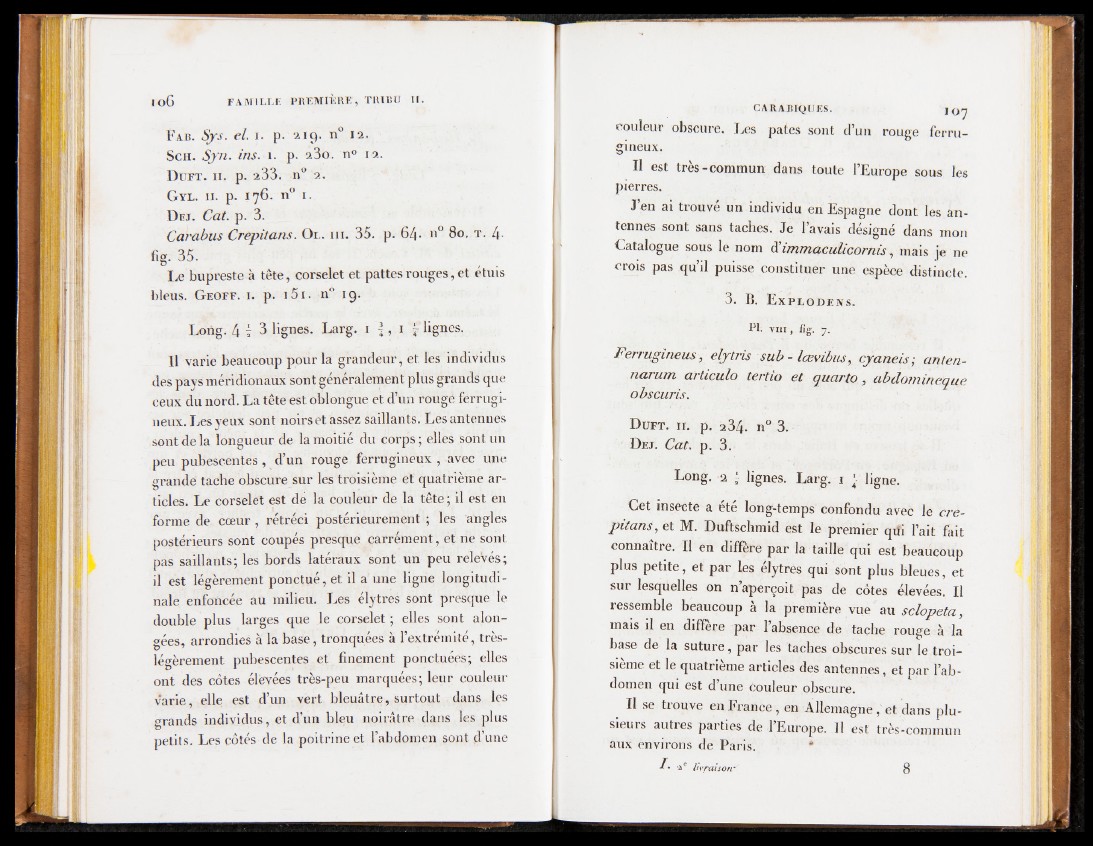 106 FAMILLE PREMIÈRE, TRIBU II.
FAB. Sys. el. I. p. 219. n° 12.
SCH. Syn. ins. I. p. 230. n° 12.
DUFT. II. p. 233. n° 2.
GYL. II. p. 176. n° 1.
DEJ. Cat. p. 3.
Carabus Crepitans. OL. III. 35. p. 64. n° 80. T. 4.
fig. 35.
Le bupreste à tête, corselet et pattes rouges, et étuis
bleus. GEOFF. I. p. 151. n° 19.
Long. 4 ½ 3 lignes. Larg. 1 ¾, 1 ¼ lignes.
Il varie beaucoup pour la grandeur, et les individus
des pays méridionaux sont généralement plus grands que
ceux du nord. La tête est oblongue et d'un rouge ferrugi-
neux. Les yeux sont noirs et assez saillants. Les antennes
sont de la longueur de la moitié du corps; elles sont un
peu pubescentes, d'un rouge ferrugineux, avec une
grande tache obscure sur les troisième et quatrième ar-
ticles. Le corselet est de la couleur de la tête; il est en
forme de cœur, rétréci postérieurement; les angles
postérieurs sont coupés presque carrément, et ne sont
pas saillants; les bords latéraux sont un peu relevés;
il est légèrement ponctué, et il a une ligne longitudi-
nale enfoncée au milieu. Les élytres sont presque le
double plus larges que le corselet; elles sont alon-
gées, arrondies à la base, tronquées à l'extrémité, très-
légèrement pubescentes et finement ponctuées; elles
ont des côtes élevées très-peu marquées; leur couleur
varie, elle est d'un vert bleuâtre, surtout dans les
grands individus, et d'un bleu noirâtre dans les plus
petits. Les côtés de la poitrine et l'abdomen sont d'une
CARABIQUES. 107
couleur obscure. Les pates sont d'un rouge ferru-
gineux.
Il est très-commun dans toute l'Europe sous les
pierres.
J'en ai trouvé un individu en Espagne dont les an-
tennes sont sans taches. Je l'avais désigné dans mon
Catalogue sous le nom d'immaculicornis, mais je ne
crois pas qu'il puisse constituer une espèce distincte.
3. B. EXPLODENS.
Pl. VIII, fig. 7.
Ferrugineus, elytris sub-lævibus, cyaneis; anten-
narum articulo tertio et quarto, abdomineque
obscuris.
DUFT. II. p. 234. n° 3.
DEJ. Cat. p. 3.
Long. 2 ½ lignes. Larg. 1 ¼ ligne.
Cet insecte a été long-temps confondu avec le cre-
pitans, et M. Duftschmid est le premier qui l'ait fait
connaître. Il en diffère par la taille qui est beaucoup
plus petite, et par les élytres qui sont plus bleues, et
sur lesquelles on n'aperçoit pas de côtes élevées. Il
ressemble beaucoup à la première vue au sclopeta,
mais il en diffère par l'absence de tache rouge à la
base de la suture, par les taches obscures sur le troi-
sième et le quatrième articles des antennes, et par l'ab-
domen qui est d'une couleur obscure.
Il se trouve en France, en Allemagne, et dans plu-
sieurs autres parties de l'Europe. Il est très-commun
aux environs de Paris.
I. 2e livraison 8